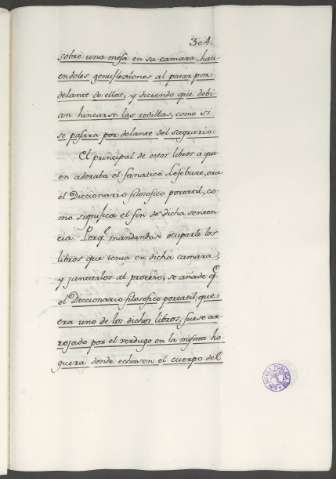 304.
sobre una mesa en su camara, haci
endoles genuflexiones al pasar por
delante de ellos, y diciendo que debi
an hincarse las rodillas, como si
se pasara por delante del Sagrario.
El principal de estos libros a qui
en adoraba el fanatico Lefebure, era
el Diccionario filosofico portatil, co
mo significa el fin de dicha senten
cia. Porq.e mandando ocuparle los
libros que tenia en dicha camara,
y juntarlos al proceso, se añade q.e
el Diccionario filosofico portatil, que
era uno de los dichos libros, fuese ar
rojado por el verdugo en la misma ho
guera donde echaron el cuerpo del